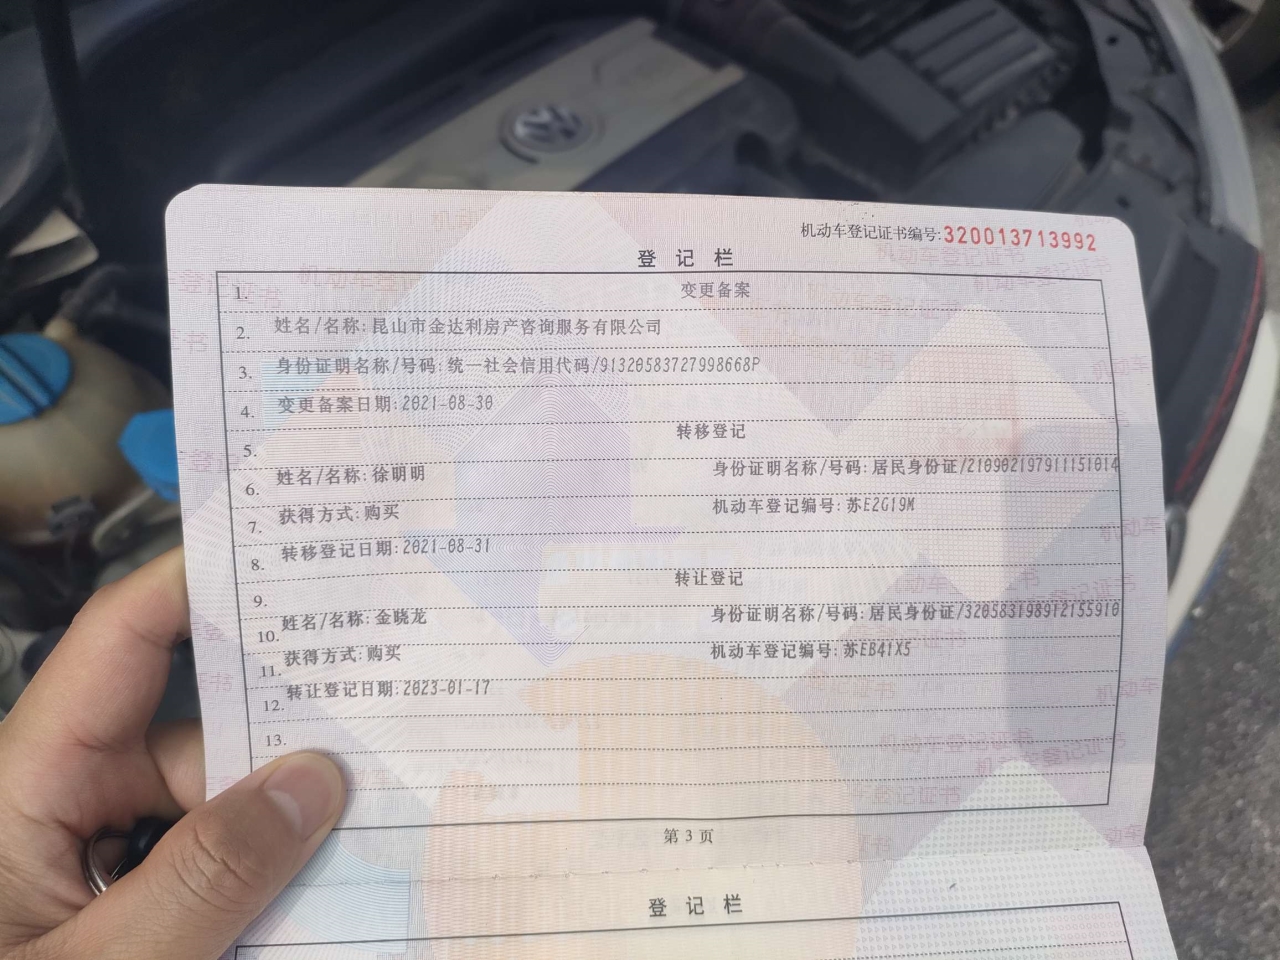 机动车登记证书编号:320013713992
登 记 栏
1. 变更备案
2. 姓名/名称:昆山市金达利房产咨询服务有限公司
3. 身份证明名称/号码:统一社会信用代码/91320583727998668P
4. 变更备案日期:2021-08-30
5. 转移登记
6. 姓名/名称:徐明明 身份证明名称/号码:居民身份证/210902197911151014
7. 获得方式:购买 机动车登记编号:苏E2G19M
8. 转移登记日期:2021-08-31
9. 转让登记
10. 姓名/名称:金晓龙 身份证明名称/号码:居民身份证/320583198912155910
11. 获得方式:购买 机动车登记编号:苏EB41X5
12. 转让登记日期:2023-01-17
13.
第 3 页
登 记 栏